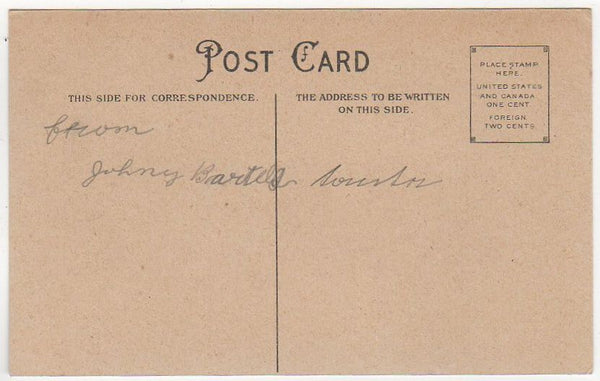 POST CARD
THIS SIDE FOR CORRESPONDENCE.
THE ADDRESS TO BE WRITTEN
ON THIS SIDE.
PLACE STAMP
HERE.
UNITED STATES
AND CANADA
ONE CENT.
FOREIGN
TWO CENTS.
from
Johny Bartels